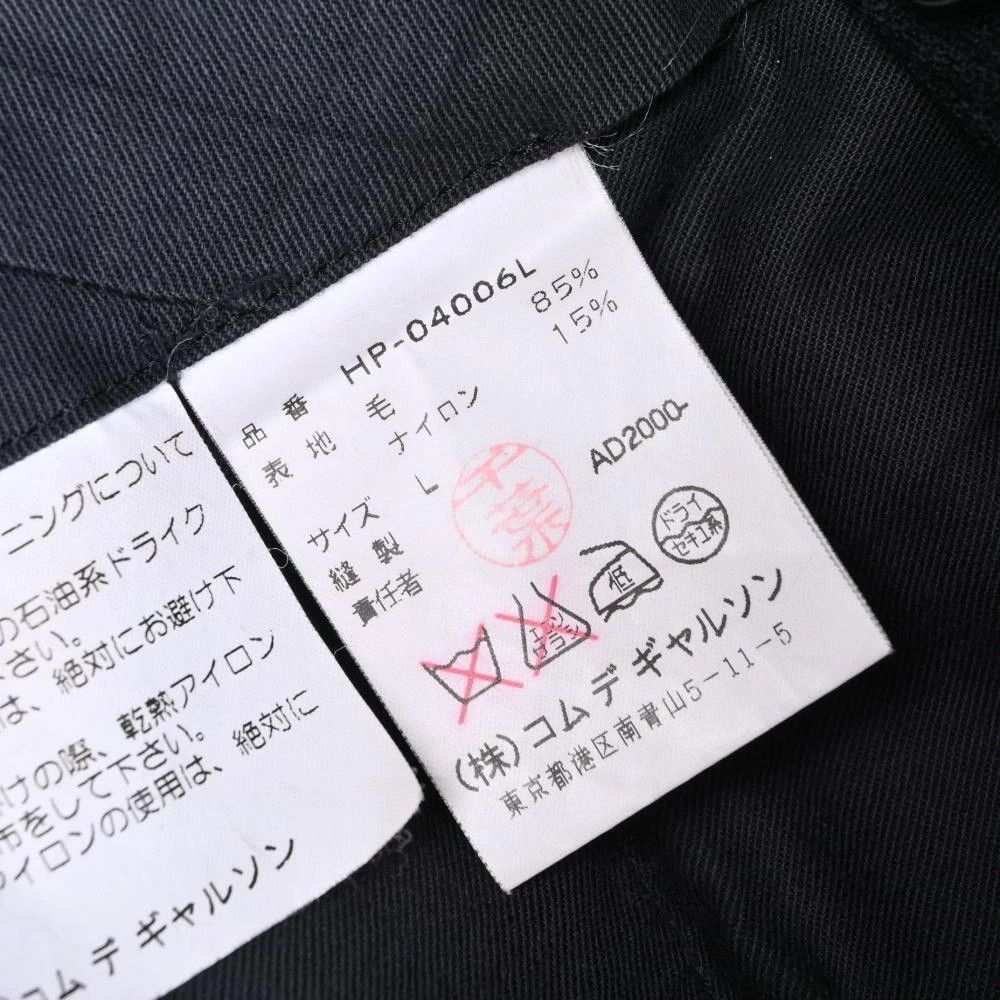 ニングについて
の石油系ドライク
さい。
は、絶対にお避け下
けの際、乾熱アイロン
布をして下さい。
イロンの使用は、絶対に
コム デ ギャルソン
品番 HP-04006L
表地 毛 85%
ナイロン 15%
サイズ L
縫製
責任者
千葉
AD2000-
エンソ
サラシ
低
ドライ
セキユ系
(株)コム デ ギャルソン
東京都港区南青山5-11-5